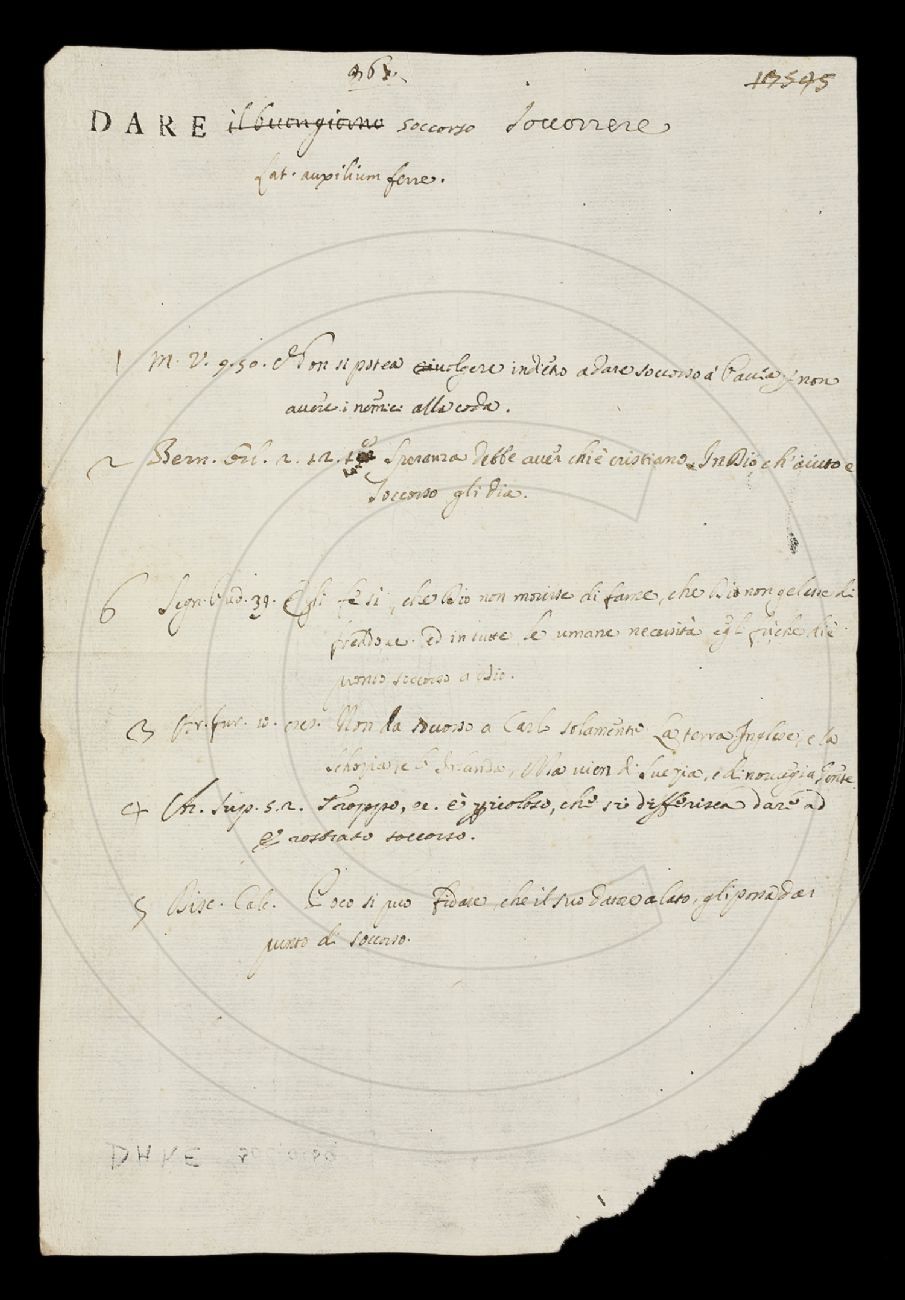 17545
DARE il buon giorno soccorso Soccorrere
Lat. auxilium ferre.
1 M. V. 9. 50. Non si potea volgere indrieto a dare soccorso a Pavia, non
avere i nemici alla coda.
2 Bern. Orl. 2. 12. Speranza debbe aver chi è cristiano In Dio, ch'aiuto e
Soccorso gli dia.
6 Segn. 39. Egli fe sì, che Dio non morisse di fame, che Dio non gelasse di
freddo ed in tutte le umane necessità egli fù che diè
pronto soccorso a Dio.
3 fur. 10. Non dà soccorso a Carlo solamente La terra Inglese, e la
Scozia, e l'Irlanda, Ma vien di Svezia, e di norvegia Gente
4 Sup. 52. Troppo, ec. è pericoloso, che si differisca dare ad
nostrato soccorso.
5 Disc. Calc. Poco si può fidare, che il suo datore a lato, gli possa dar
punto di soccorso.
DARE